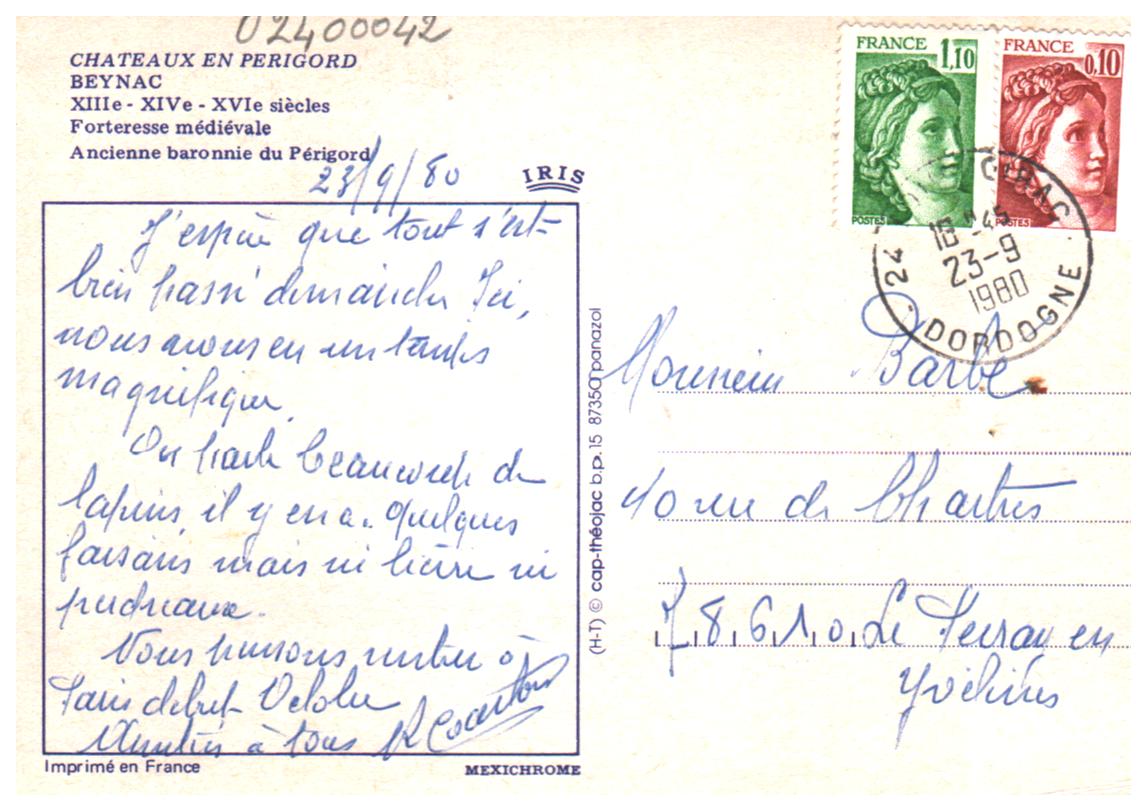 02400042
CHATEAUX EN PERIGORD
BEYNAC
XIIIe - XIVe - XVIe siècles
Forteresse médiévale
Ancienne baronnie du Périgord
23/9/80
IRIS
J'espère que tout s'est
bien passé dimanche. Ici,
nous avons eu un temps
magnifique.
On parle beaucoup de
lapins, il y en a. Quelques
faisans mais ni lièvre ni
perdreaux.
Nous pensons rentrer à
Paris début Octobre
Amitiés à tous
Imprimé en France
MEXICHROME
(H-T) © cap-théojac b.p. 15 87350 panazol
FRANCE 1,10
POSTES
FRANCE 0,10
POSTES
24 CIRAC
18 H45
23-9
1980
DORDOGNE
Monsieur Barbe
10 rue de Chartres
78610 Le Perray en
Yvelines